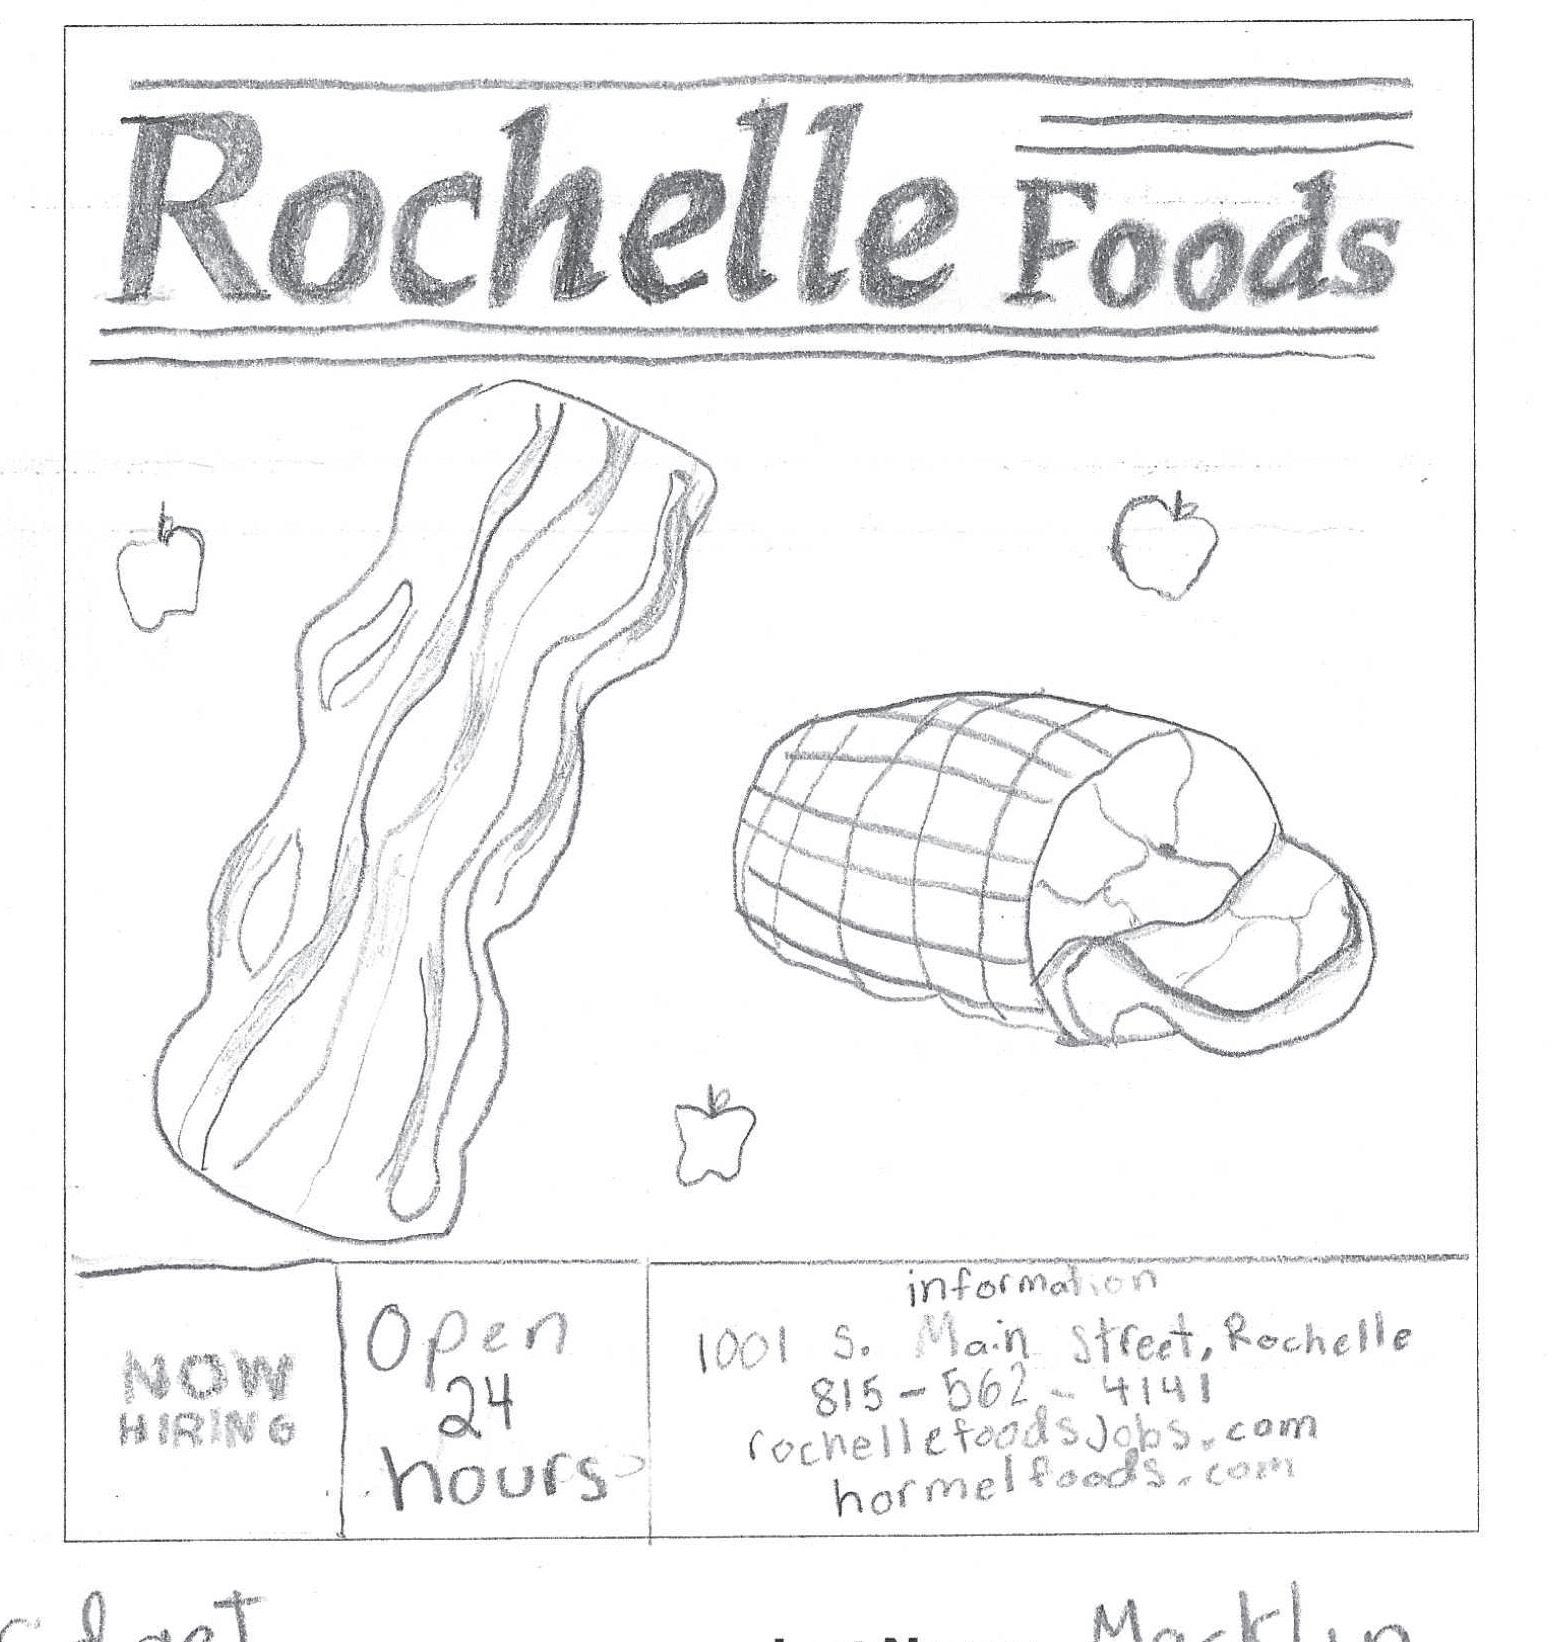 Rochelle Foods
NOW
HIRING
Open
24
hours
information
1001 S. Main Street, Rochelle
815-562-4141
rochellefoodsJobs.com
hormelfoods.com
Macklyn